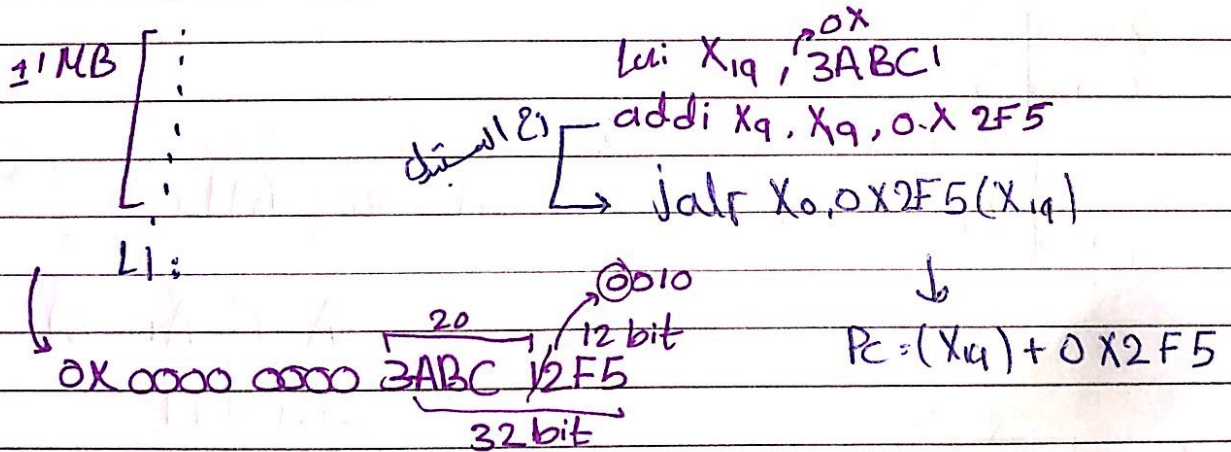 ±1MB
lui X19, 0x 3ABC1
addi X9, X9, 0.X 2F5
jalr X0, 0X2F5(X19)
L1:
0010
20
12 bit
0X 0000 0000 3ABC 12F5
32 bit
PC = (X19) + 0X2F5